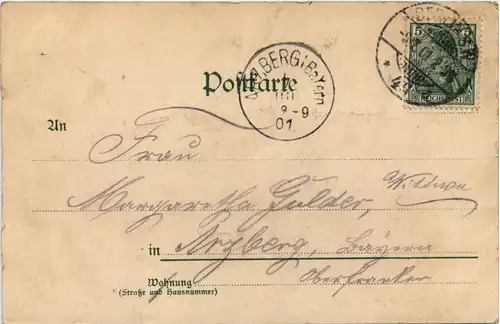 Postkarte
An
Frau
Margaretha Gulder, Wittwe
in Arzberg, Bayern
Wohnung Oberfranken
(Straße und Hausnummer)
ARZBERG (Bayern)
III
8-9
01
5
REICHSPOST